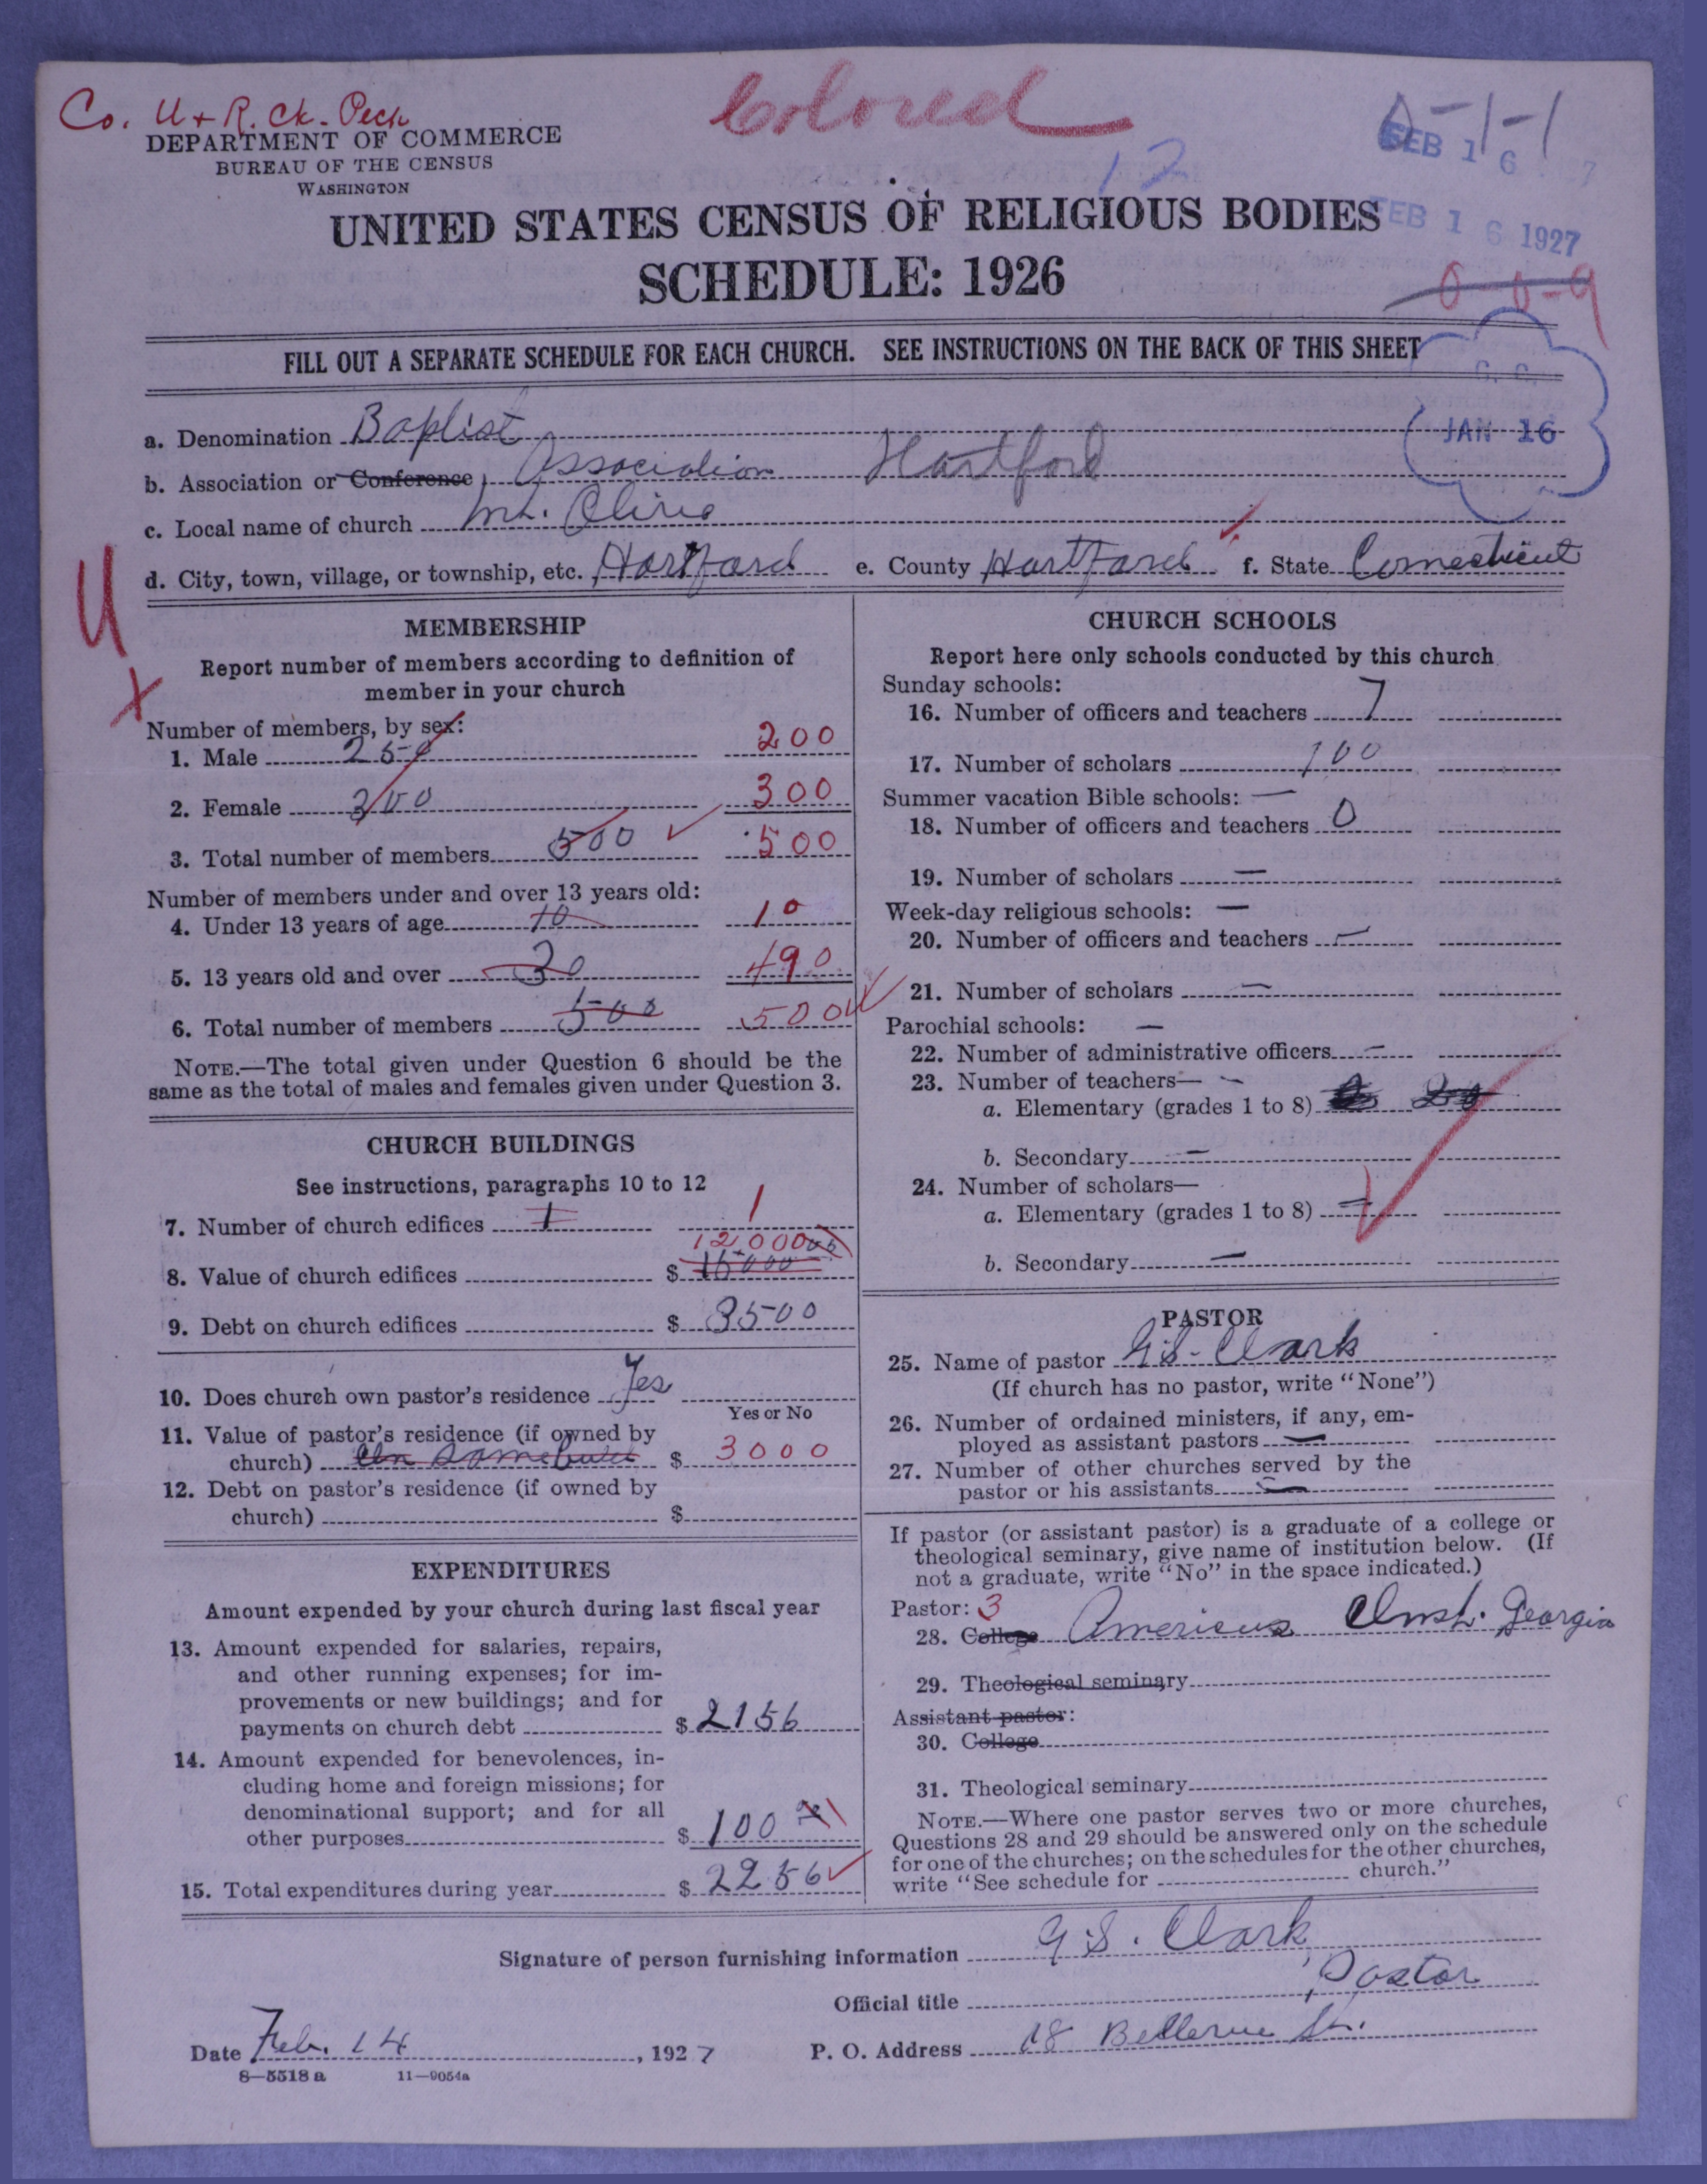 Co. U + R. Ck. Peck
Colored
DEPARTMENT OF COMMERCE
BUREAU OF THE CENSUS
WASHINGTON
12
FEB 16
FEB 16 1927
UNITED STATES CENSUS OF RELIGIOUS BODIES
SCHEDULE: 1926
FILL OUT A SEPARATE SCHEDULE FOR EACH CHURCH. SEE INSTRUCTIONS ON THE BACK OF THIS SHEET
JAN 16
a. Denomination Baptist
b. Association or Conference Association Hartford
c. Local name of church Mt. Olive
d. City, town, village, or township, etc. Hartford e. County Hartford f. State Connecticut
U
x
MEMBERSHIP
Report number of members according to definition of
member in your church
Number of members, by sex:
1. Male 250 200
2. Female 300 300
3. Total number of members 500 500
Number of members under and over 13 years old:
4. Under 13 years of age 10 10
5. 13 years old and over 30 490
6. Total number of members 500 500
NOTE.—The total given under Question 6 should be the
same as the total of males and females given under Question 3.
CHURCH BUILDINGS
See instructions, paragraphs 10 to 12
7. Number of church edifices 1 1
12000
8. Value of church edifices $ 15000
9. Debt on church edifices $ 3500
10. Does church own pastor's residence Yes
Yes or No
11. Value of pastor's residence (if owned by
church) $ 3000
12. Debt on pastor's residence (if owned by
church) $
EXPENDITURES
Amount expended by your church during last fiscal year
13. Amount expended for salaries, repairs,
and other running expenses; for im-
provements or new buildings; and for
payments on church debt $ 2156
14. Amount expended for benevolences, in-
cluding home and foreign missions; for
denominational support; and for all
other purposes $ 100
15. Total expenditures during year $ 2256
CHURCH SCHOOLS
Report here only schools conducted by this church
Sunday schools:
16. Number of officers and teachers 7
17. Number of scholars 100
Summer vacation Bible schools: —
18. Number of officers and teachers 0
19. Number of scholars —
Week-day religious schools: —
20. Number of officers and teachers —
21. Number of scholars —
Parochial schools: —
22. Number of administrative officers —
23. Number of teachers— —
a. Elementary (grades 1 to 8) 20
b. Secondary —
24. Number of scholars—
a. Elementary (grades 1 to 8) —
b. Secondary —
PASTOR
25. Name of pastor G.S. Clark
(If church has no pastor, write "None")
26. Number of ordained ministers, if any, em-
ployed as assistant pastors —
27. Number of other churches served by the
pastor or his assistants —
If pastor (or assistant pastor) is a graduate of a college or
theological seminary, give name of institution below. (If
not a graduate, write "No" in the space indicated.)
Pastor: 3
28. College Americus Inst. Georgia
29. Theological seminary
Assistant pastor:
30. College
31. Theological seminary
NOTE.—Where one pastor serves two or more churches,
Questions 28 and 29 should be answered only on the schedule
for one of the churches; on the schedules for the other churches,
write "See schedule for church."
Signature of person furnishing information G.S. Clark
Official title Pastor
Date Feb. 14, 1927 P. O. Address 18 Bellevue St.
8—5518 a 11—9054a